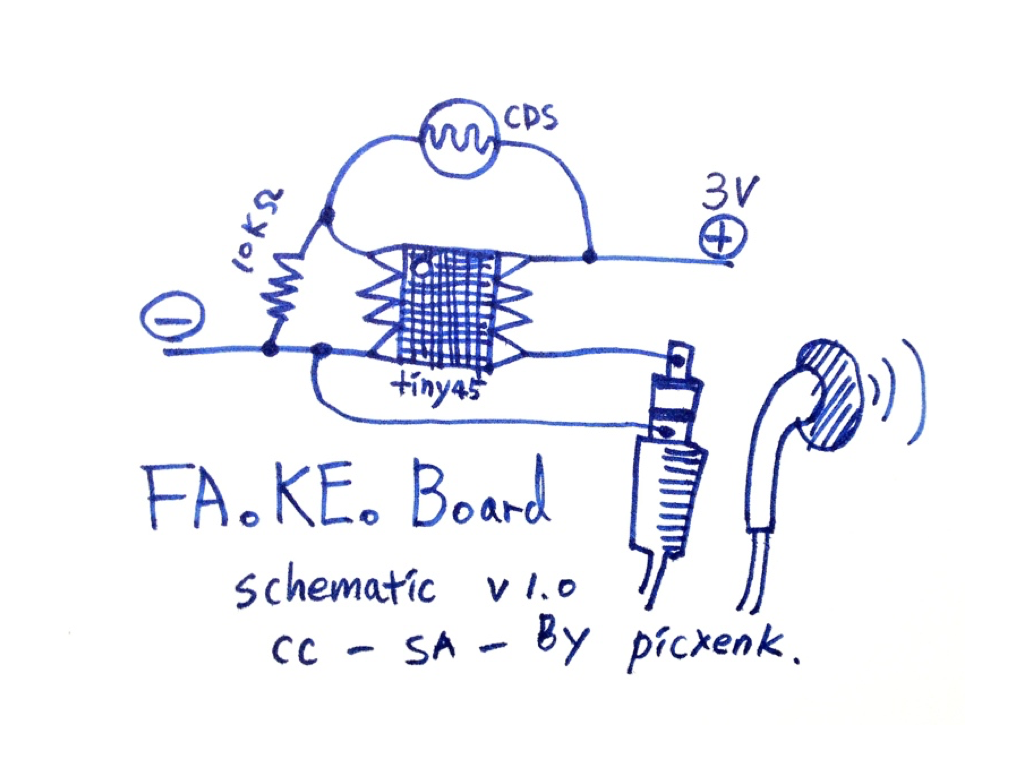 CDS
3V
+
10KΩ
−
tiny45
FA.KE. Board
schematic v 1.0
CC - SA - By picxenk.